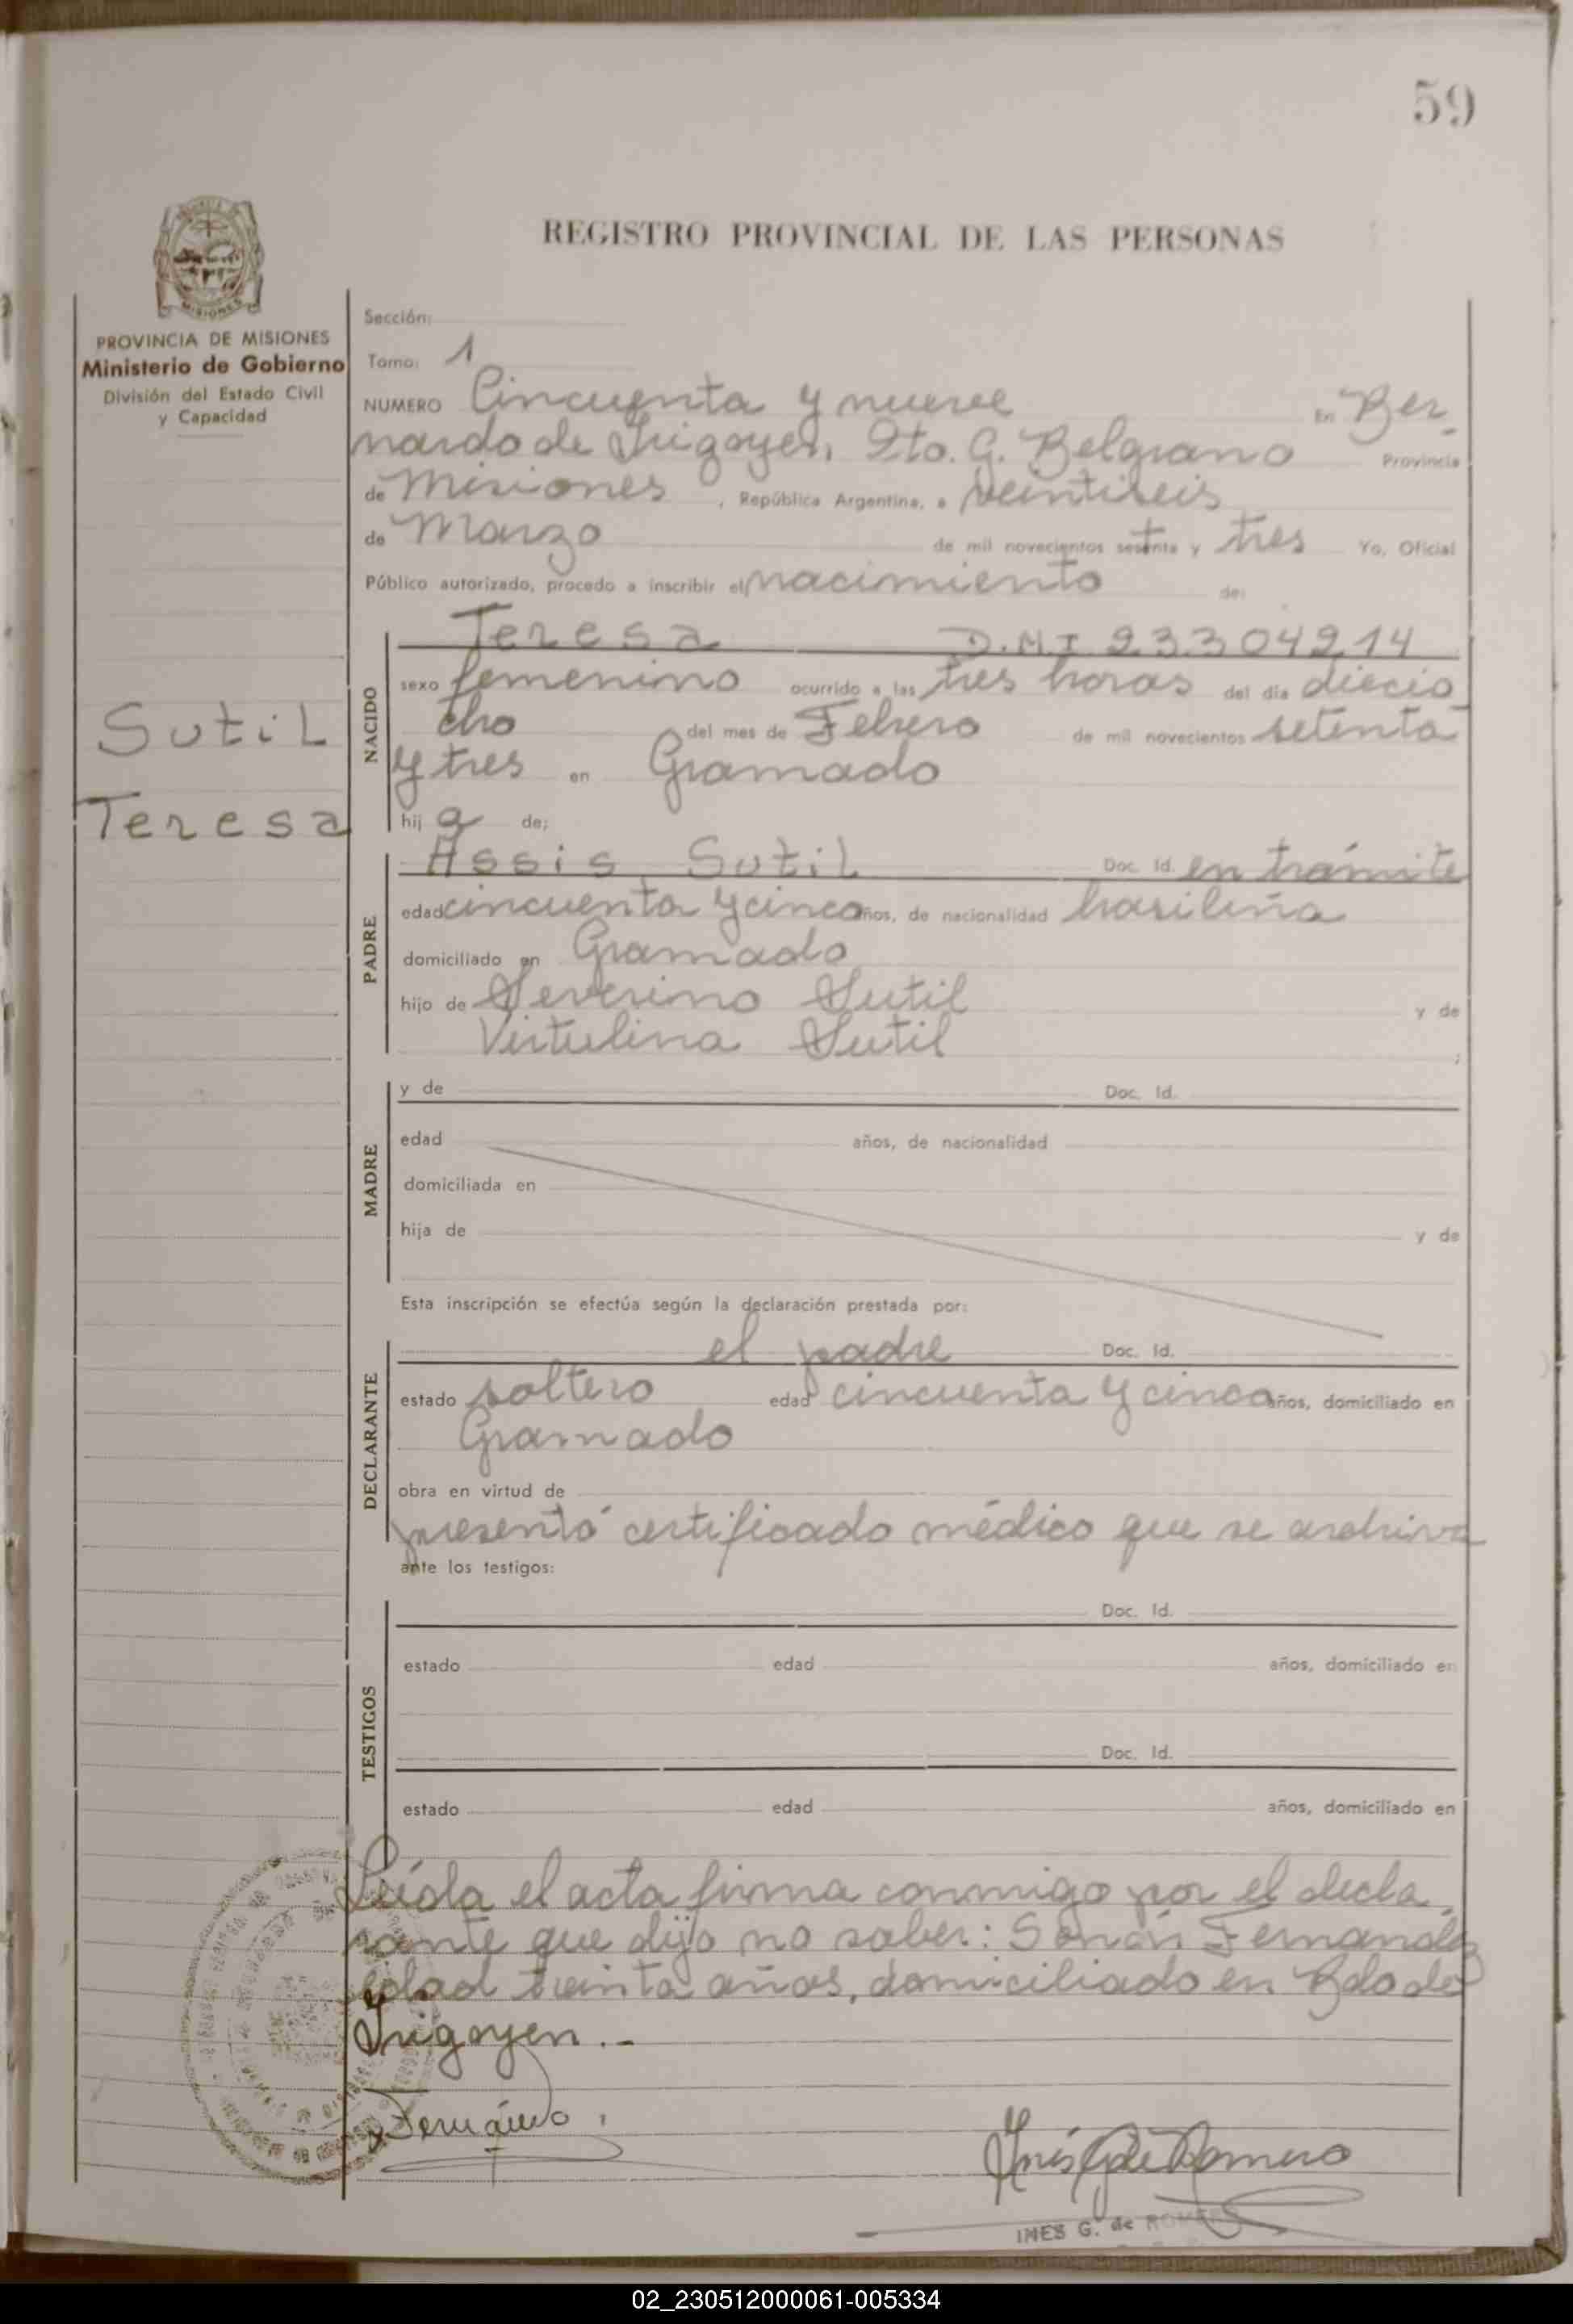 59
REGISTRO PROVINCIAL DE LAS PERSONAS
MISIONES
PROVINCIA DE MISIONES
Ministerio de Gobierno
División del Estado Civil
y Capacidad
Sutil
Teresa
Sección:
Tomo: 1
NUMERO Cincuenta y nueve En Ber-
nardo de Irigoyen, Dto. G. Belgrano Provincia
de Misiones, República Argentina, a veintiseis
de Marzo de mil novecientos setenta y tres Yo, Oficial
Público autorizado, procedo a inscribir el nacimiento de:
NACIDO
Teresa D.N.I 23.304.214
sexo femenino ocurrido a las tres horas del día diecio
cho del mes de Febrero de mil novecientos setenta
y tres en Gramado
hija de;
PADRE
Assis Sutil Doc. Id. en trámite
edad cincuenta y cinco años, de nacionalidad brasileña
domiciliado en Gramado
hijo de Severino Sutil y de
Virtulina Sutil ;
MADRE
y de Doc. Id.
edad años, de nacionalidad
domiciliada en
hija de y de
Esta inscripción se efectúa según la declaración prestada por:
DECLARANTE
el padre Doc. Id.
estado soltero edad cincuenta y cinco años, domiciliado en
Gramado
obra en virtud de
presentó certificado médico que se archiva
ante los testigos:
TESTIGOS
Doc. Id.
estado edad años, domiciliado en
Doc. Id.
estado edad años, domiciliado en
Leída el acta firma conmigo por el decla-
rante que dijo no saber: Fernandez
edad treinta años, domiciliado en Bdo de
Irigoyen.-
Inés G de Romero
INES G. de ROMERO
02_230512000061-005334